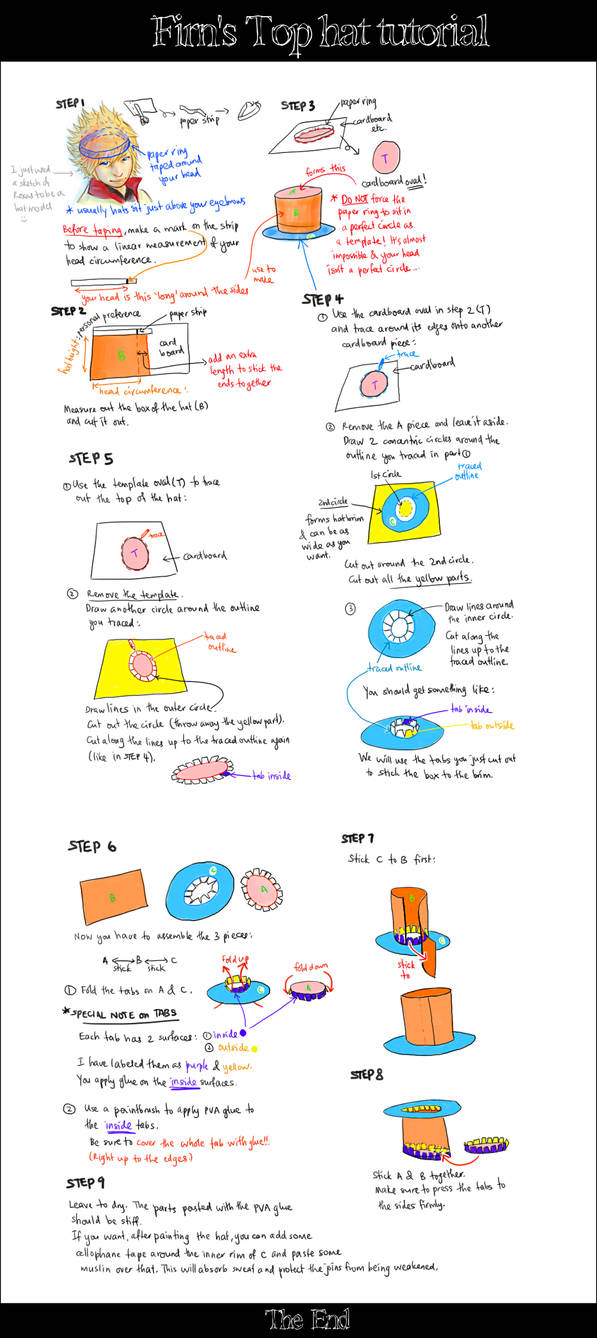 Firn's Top hat tutorial
STEP 1
paper strip
I just used
a sketch of
Roxas to be a
hat model
paper ring
taped around
your head
* usually hats sit just above your eyebrows
Before taping, make a mark on the strip
to show a linear measurement of your
head circumference.
your head is this 'long' around the sides
STEP 2
personal preference
paper strip
hat height:
B
card
board
add an extra
length to stick the
ends together
head circumference
Measure out the box of the hat (B)
and cut it out.
STEP 3
paper ring
cardboard
etc.
T
cardboard oval!
forms this
A
B
* DO NOT force the
paper ring to sit in
a perfect circle as
a template! It's almost
impossible & your head
isn't a perfect circle...
use to
make
STEP 4
① Use the cardboard oval in step 2 (T)
and trace around its edges onto another
cardboard piece:
trace
cardboard
T
② Remove the A piece and leave it aside.
Draw 2 concentric circles around the
outline you traced in part ①
1st circle
traced
outline
2nd circle
forms hat brim
& can be as
wide as you
want.
C
Cut out around the 2nd circle.
Cut out all the yellow parts.
③
Draw lines around
the inner circle.
Cut along the
lines up to the
traced outline.
traced outline
You should get something like:
tab inside
tab outside
We will use the tabs you just cut out
to stick the box to the brim.
STEP 5
① Use the template oval (T) to trace
out the top of the hat:
trace
T
cardboard
② Remove the template.
Draw another circle around the outline
you traced:
traced
outline
Draw lines in the outer circle.
Cut out the circle (throw away the yellow part).
Cut along the lines up to the traced outline again
(like in STEP 4).
tab inside
STEP 6
B
C
A
Now you have to assemble the 3 pieces:
A ↔ B ↔ C
stick stick
① Fold the tabs on A & C.
Fold up
C
fold down
A
* SPECIAL NOTE on TABS
Each tab has 2 surfaces: ① inside
② outside
I have labeled them as purple & yellow.
You apply glue on the inside surfaces.
② Use a paintbrush to apply PVA glue to
the inside tabs.
Be sure to cover the whole tab with glue!!
(Right up to the edges.)
STEP 7
Stick C to B first:
B
C
stick
to
STEP 8
Stick A & B together.
Make sure to press the tabs to
the sides firmly.
STEP 9
Leave to dry. The parts pasted with the PVA glue
should be stiff.
If you want, after painting the hat, you can add some
cellophane tape around the inner rim of C and paste some
muslin over that. This will absorb sweat and protect the joins from being weakened.
The End